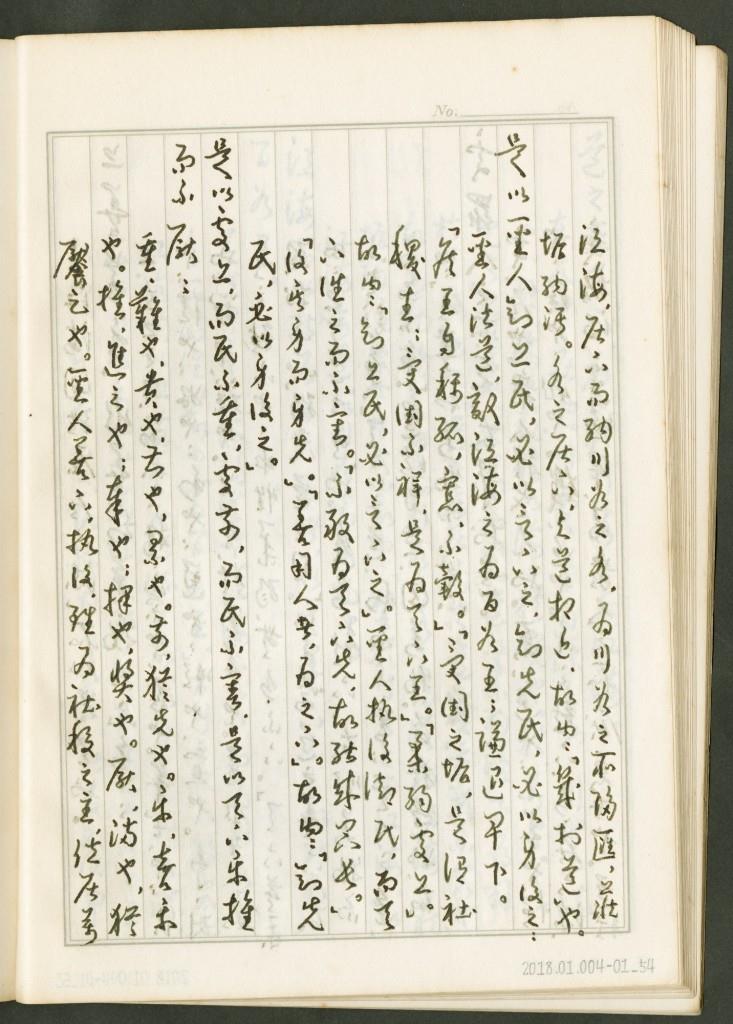 No.
江海，居下而納川谷之水，為川谷之所歸匯，並
垢納污。水之居下，與道相近，故曰：「幾於道」也。
是以聖人欲上民，必以言下之，欲先民，必以身後之：
聖人法道，效江海之為百谷王：謙退卑下。
「侯王自稱孤，寡，不穀。」「受國之垢，是謂社
稷主：受國不祥，是為天下王。」「柔弱處上。」
故曰：「欲上民，必以言下之。」聖人執後御民，而天
下往之而不害。「不敢為天下先，故能成器長。」
「後其身而身先。」「善用人者，為之下。」故曰：「欲先
民，必以身後之。」
是以處上，而民不重，處前，而民不害，是以天下樂推
而不厭：
重：難也，貴也，尚也，累也。前，猶先也。樂，喜樂
也。推，進之也：奉也：擇也，獎也。厭，滿也，猶
饜足也。聖人善下，執後，雖為社稷之主，從居萬
2018.01.004-01_54